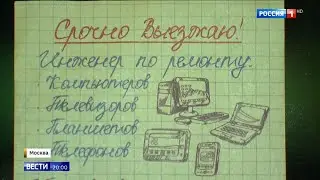 РОССИЯ 1 HD
Срочно Выезжаю!
Инженер по ремонту:
Компьютеров
Телевизоров
Планшетов
Телефонов
Москва
ВЕСТИ 20:00